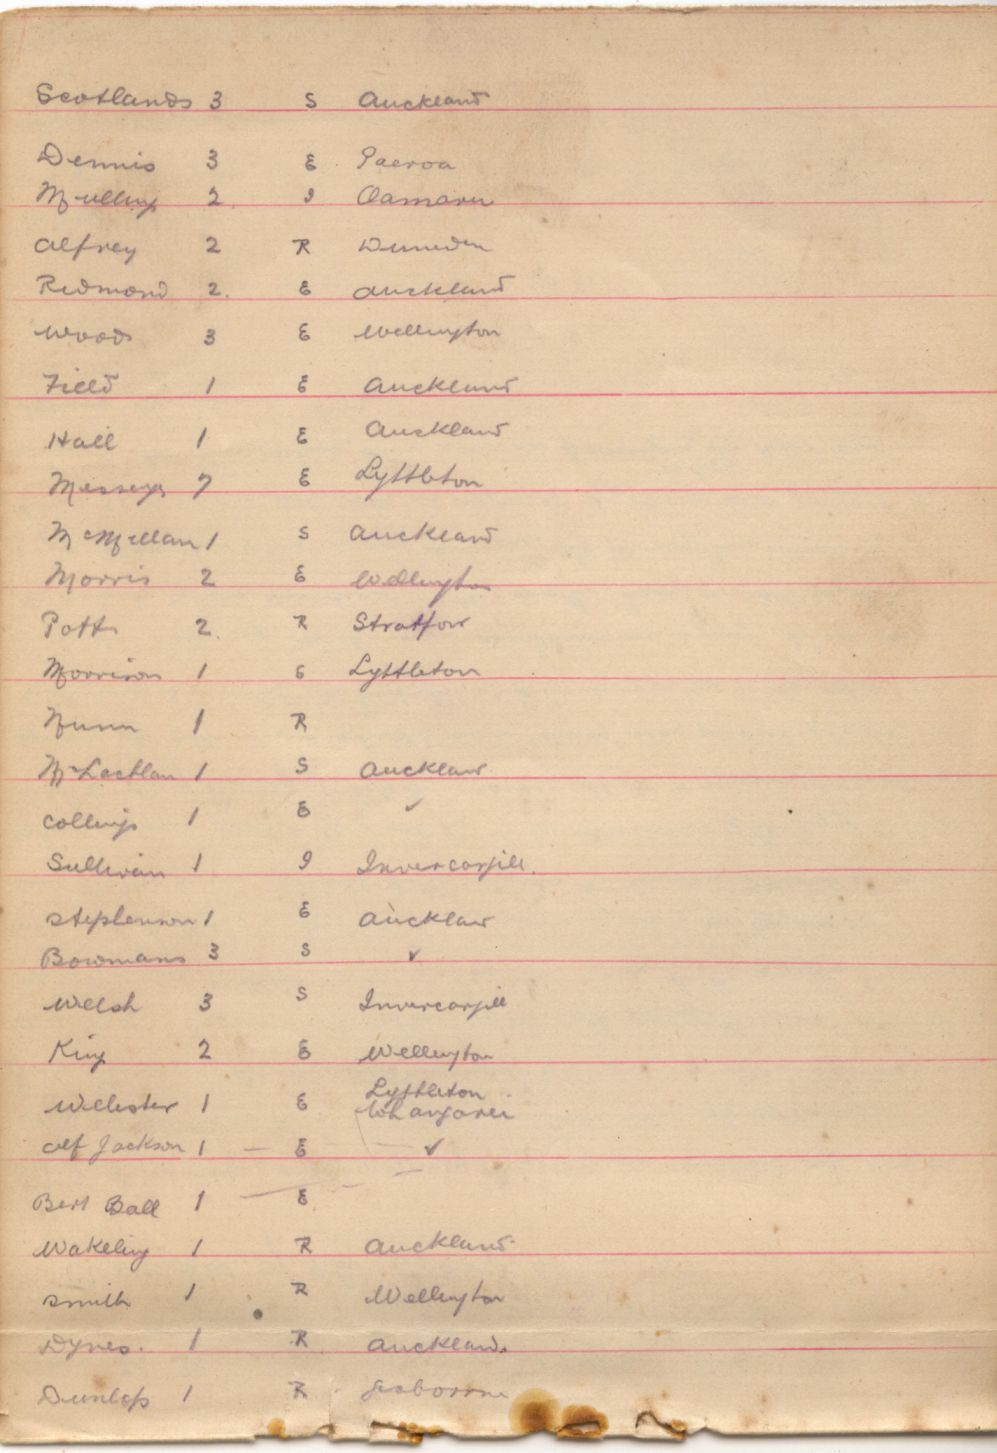 Scotlands 3 S Auckland
Dennis 3 E Paeroa
2 I Oamaru
Alfrey 2 R Dunedin
Redmond 2. E Auckland
Woods 3 E Wellington
Field 1 E Auckland
Hall 1 E Auckland
7 E Lyttleton
McMillan 1 S Auckland
Morris 2 E Wellington
Potts 2. R Stratfor
Morrison 1 S Lyttleton
Nunn 1 R
McLachlan 1 S Aucklan
Collings 1 E ✓
Sullivan 1 I Invercargill.
Stephenson 1 E Aucklan
Bowmans 3 S ✓
Welsh 3 S Invercargill
King 2 E Wellington
Webster 1 E Lyttleton
Whangarei
Alf Jackson 1 — E — ✓
Bert Ball 1 — E
Wakeling 1 R Auckland
Smith 1 R Wellington
Dynes. 1 R Auckland.
Dunlop 1 R Gisborne